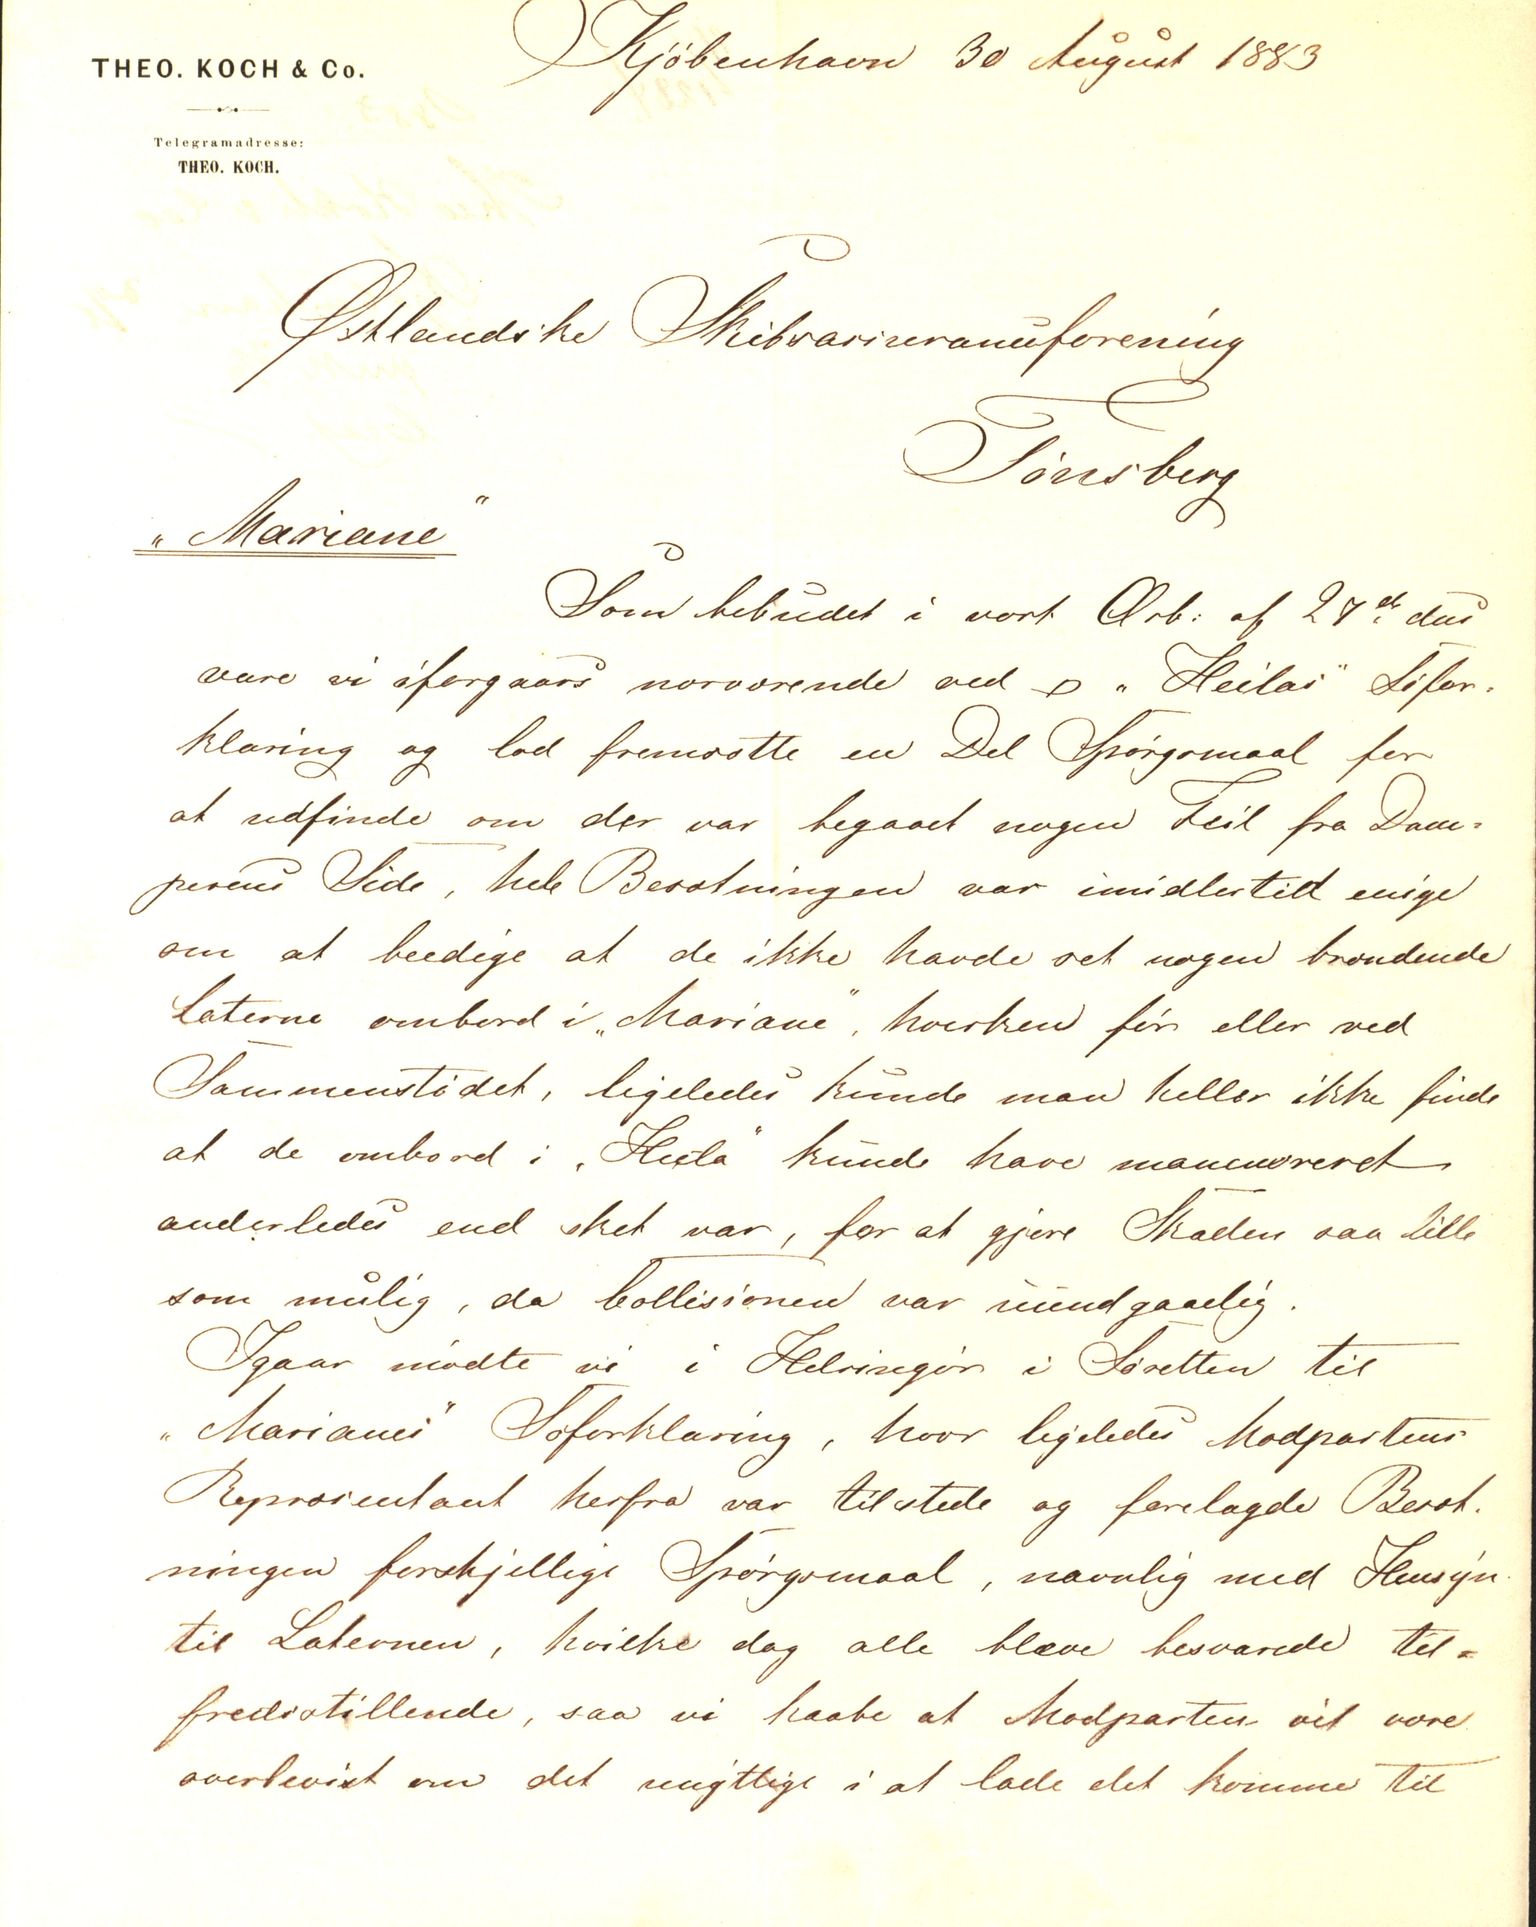 Kjöbenhavn 30 August 1883
THEO. KOCH & Co.
Telegramadresse:
THEO. KOCH.
Østlandske Skibsassuranceforening
Tönsberg
"Mariane"
Som bebudet i vort Ærb: af 27de ds
vare vi iforgaars nærværende ved "Heilas" Söfor-
klaring og lod fremsætte en Del Spörgsmaal for
at udfinde om der var begaaet nogen Feil fra Dam-
perens Side, hele Besætningen var imidlertid enige
om at beedige at de ikke havde set nogen brændende
Laterne ombord i "Mariane", hverken för eller ved
Sammenstödet, ligeledes kunde man heller ikke finde
at de ombord i "Heila" kunde have manøvreret
anderledes end sket var, for at gjøre Skaden saa lille
som mulig, da Collisionen var uundgaaelig.
Igaar mödte vi i Helsingör i Söretten til
"Marianes" Söforklaring, hvor ligeledes Modpartens
Repræsentant herfra var tilstede og forelagde Besæt-
ningen forskjellige Spörgsmaal, navnlig med Hensyn
til Laternen, hvilke dog alle bleve besvarede til-
fredsstillende, saa vi haabe at Modparten vil være
overbevist om det unyttige i at lade det komme til